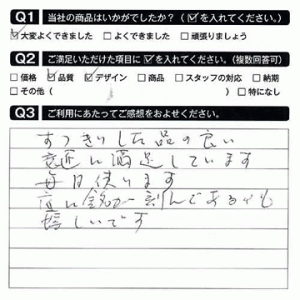 Q1 当社の商品はいかがでしたか？（☑を入れてください。）
☑大変よくできました □よくできました □頑張りましょう
Q2 ご満足いただけた項目に☑を入れてください。（複数回答可）
□価格 ☑品質 ☑デザイン □商品 □スタッフの対応 □納期
□その他（ ） □特になし
Q3 ご利用にあたってご感想をおよせください。
すっきりした品の良い
意匠に満足しています
毎日使います
底に銘が刻んであるのも
嬉しいです